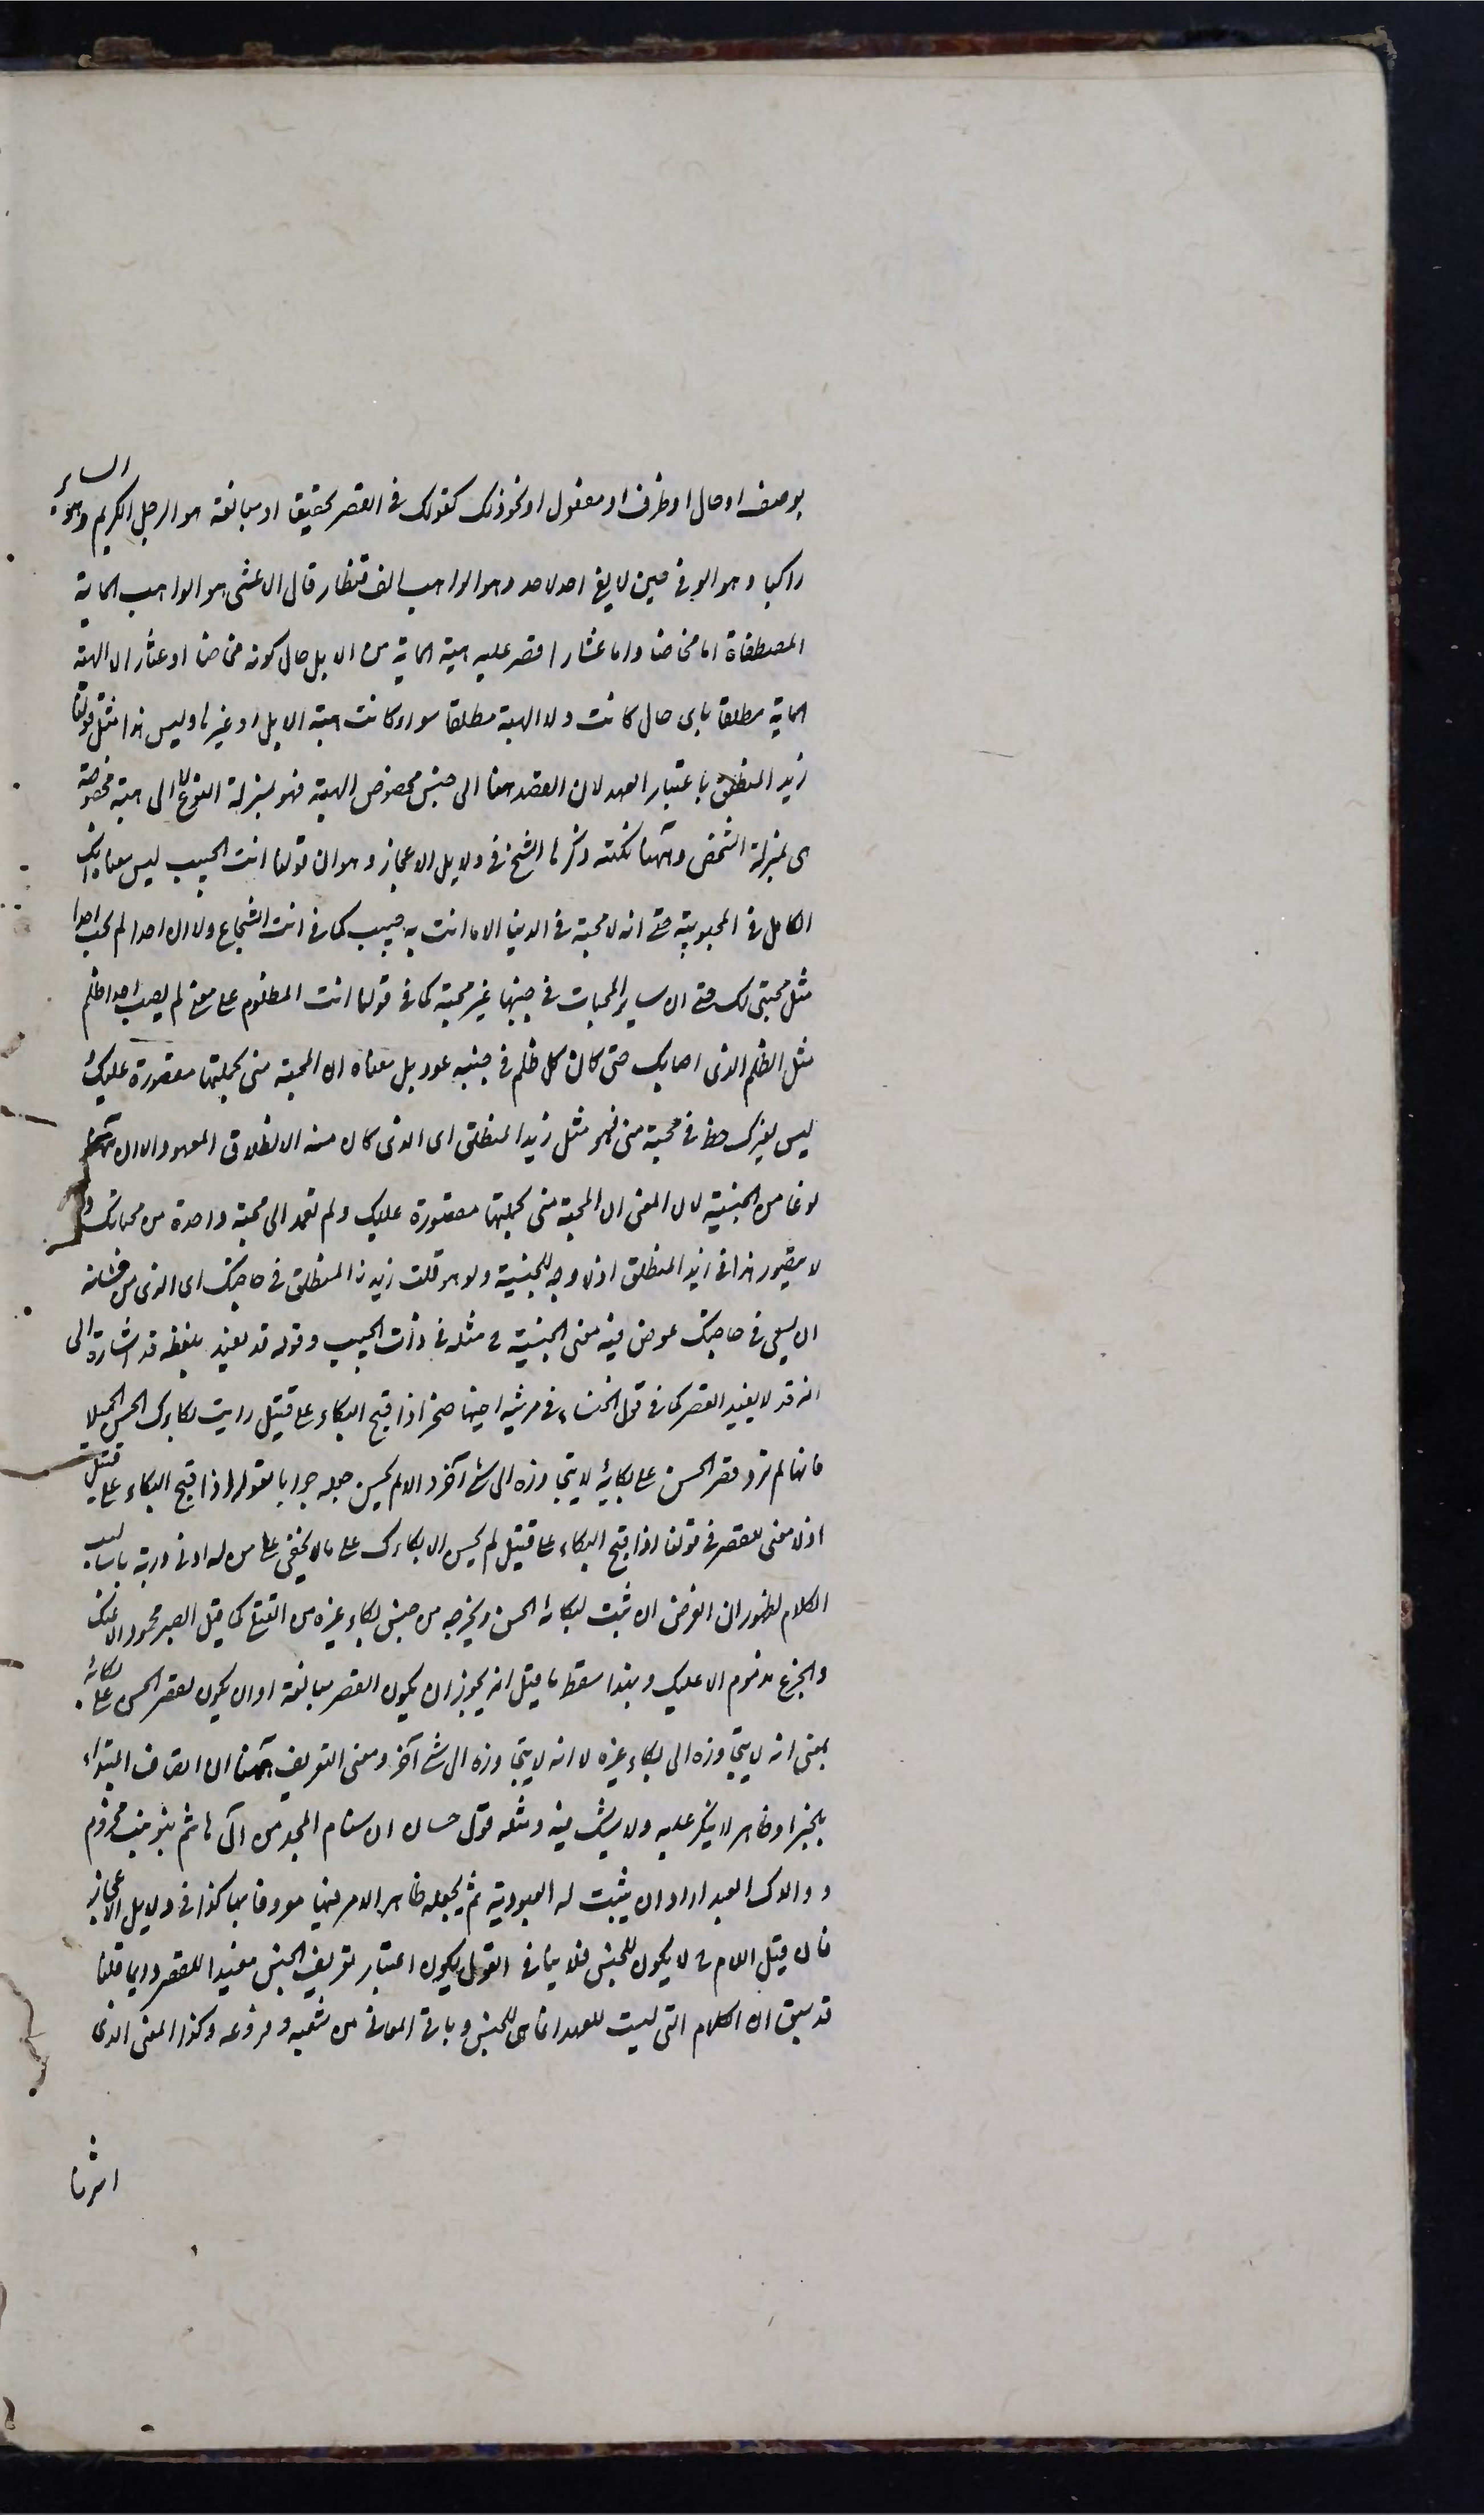 بوصف او حال او ظرف او مفعول او نحو ذلك كقولك فى القصر تحقيقا او مبالغة هو الرجل الكريم وهو السائر
راكبا وهو الوفى حين لا يفى احد لاحد وهو الواهب الف قنطار قال الاعشى هو الواهب الماية
المصطفاة اما مخاضا واما عشارا قصر عليه هبة الماية من الابل حال كونه مخاضا او عشارا لا الهبة
الماية مطلقا باى حال كانت ولا الهبة مطلقا سواء كانت هبة الابل او غيرها وليس هذا مثل قولنا
زيد المنطلق باعتبار العهد لان القصد ههنا الى جنس مخصوص الهبة فهو بمنزلة النوع لا الى هبة مخصوصة
هى بمنزلة الشخص وههنا نكتة ذكرها الشيخ فى دلايل الاعجاز وهو ان قولنا انت الحبيب ليس معناه انك
الكامل فى المحبوبية حتى انه لا محبة فى الدنيا الا ما انت به حبيب كما فى انت الشجاع ولا ان احدا لم يحب احدا
مثل محبتى لك حتى ان ساير المحبات فى جنبها غير محبة كما فى قولنا انت المظلوم على معنى لم يصب احدا ظلم
مثل الظلم الذى اصابك حتى كان كل ظلم فى جنبه عدل بل معناه ان المحبة منى بجملتها مقصورة عليك
ليس لغيرك حظ فى محبة منى فهو مثل زيد المنطلق اى الذى كان منه الانطلاق المعهود الا ان ههنا
نوعا من الجنسية لان المعنى ان المحبة منى بجملتها مقصورة عليك ولم تعمد الى محبة واحدة من محباتك و
لا يتصور هذا فى زيد المنطلق اذ لا وجه للجنسية ولو قلت زيد المنطلق فى حاجتك اى الذى من شانه
ان يسعى فى حاجتك عرض فيه معنى الجنسية ح مثله فى انت الحبيب وقوله قد يفيد بلفظه قد اشارة الى
انه قد لا يفيد القصر كما فى قول الخنساء فى مرثية اخيها صخر اذا قبح البكاء على قتيل رايت بكاءك الحسن الجميلا
فانها لم ترد قصر الحسن على بكائه لا يتجاوزه الى شئ آخر والا لم يحسن جعله جوابا لقولها اذا قبح البكاء على قتيل
اذ لا معنى للقصر فى قولنا اذا قبح البكاء على قتيل لم يحسن الا بكاءك على ما لا يخفى على من له ادنى دربة باساليب
الكلام لظهور ان الغرض ان تثبت لبكائه الحسن وتخرجه من جنس بكاء غيره من القتلى كما قيل الصبر محمود الا عنك
والجزع مذموم الا عليك وبهذا سقط ما قيل انه يجوز ان يكون القصر مبالغة او ان يكون لقصر الحسن على بكائه
بمعنى انه لا يتجاوزه الى بكاء غيره لا انه لا يتجاوزه الى شئ آخر ومعنى التعريف ههنا ان اتصاف المبتداء
بالخبر امر ظاهر لا ينكر عليه ولا يشك فيه ومثله قول حسان ان سنام المجد من آل هاشم بنو بنت مخزوم
ووالدك العبد اراد ان يثبت له العبودية ثم يجعله ظاهر الامر فيها معروفا بها كذا فى دلايل الاعجاز
فان قيل اللام ح لا يكون للجنس فلا ينافى القول بكون اعتبار تعريف الجنس مفيدا للقصر دايما قلنا
قد سبق ان اللام التى ليست للعهد انما هى للجنس وباقى المعانى من شعبه وفروعه وكذا المعنى الذى
اشرنا